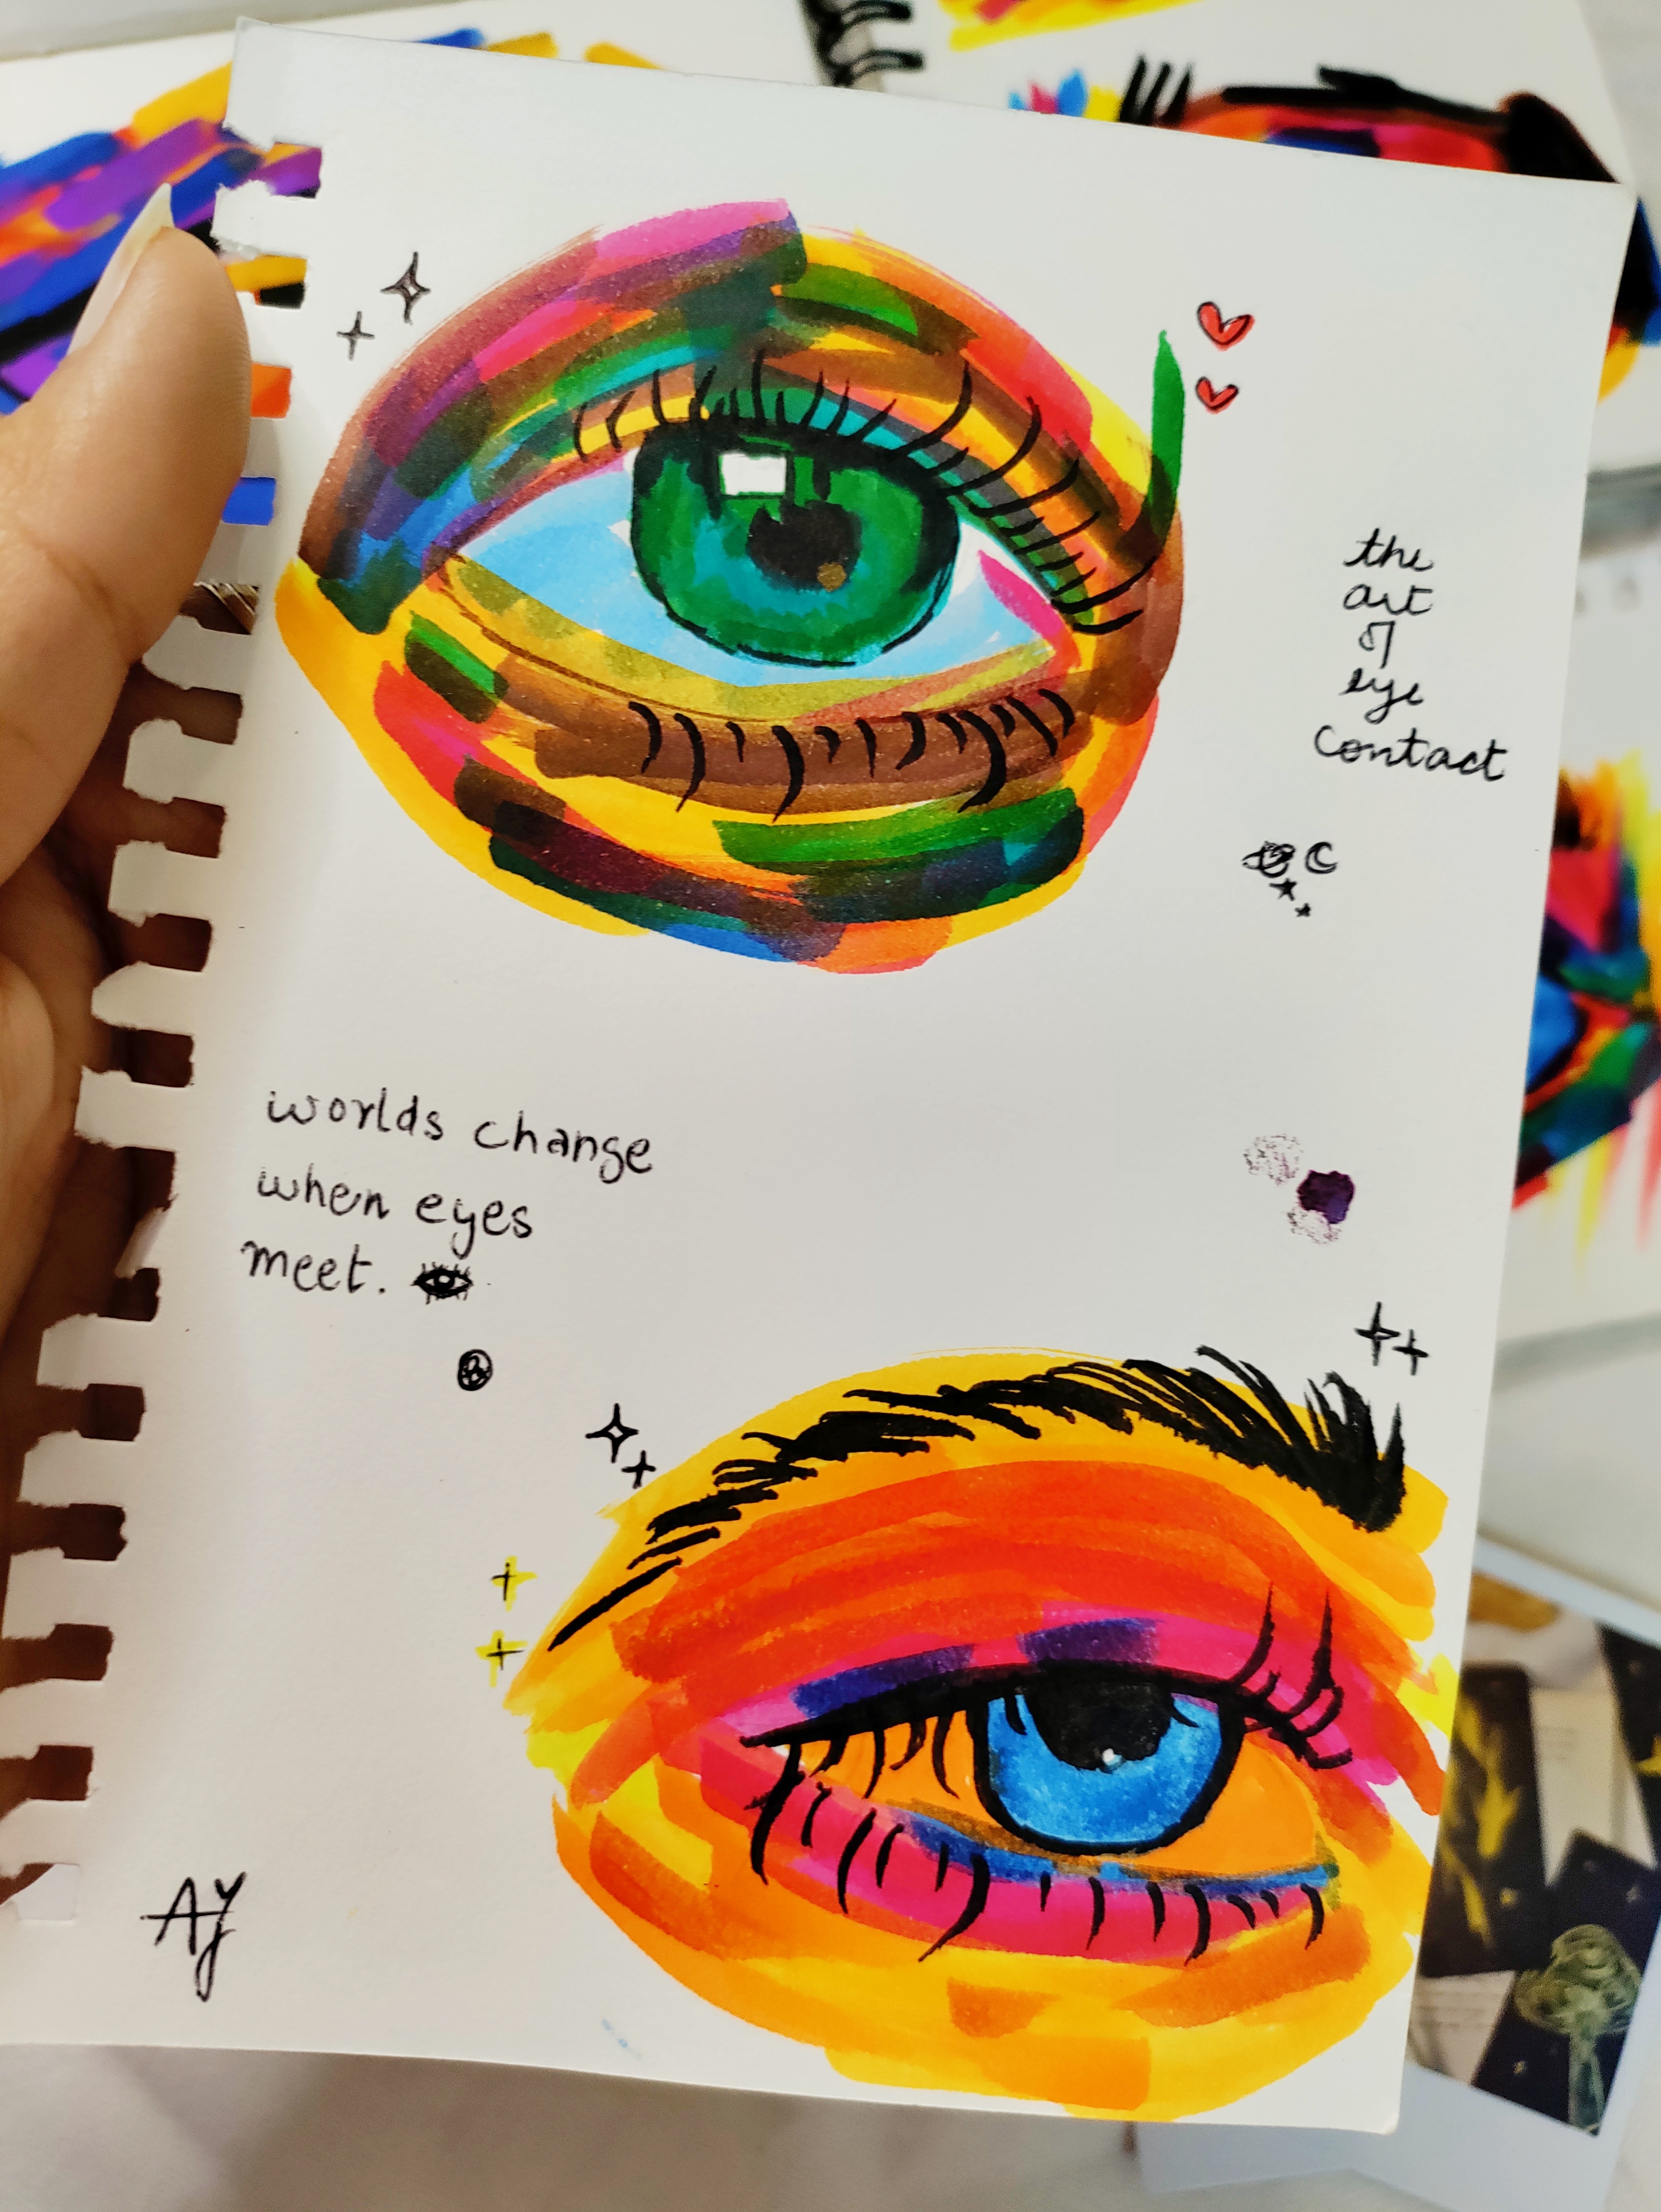 the
art
of
eye
contact
worlds change
when eyes
meet.
AJ